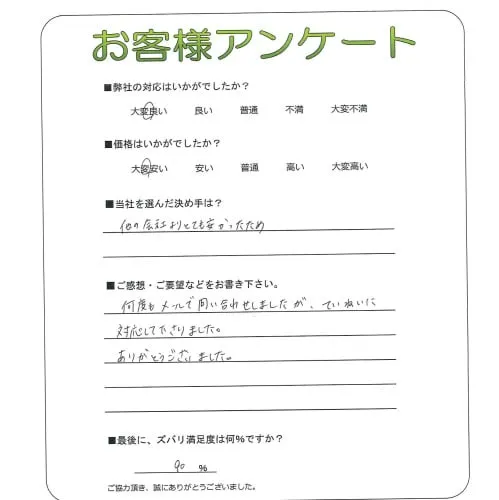 お客様アンケート
■弊社の対応はいかがでしたか？
大変良い 良い 普通 不満 大変不満
■価格はいかがでしたか？
大変安い 安い 普通 高い 大変高い
■当社を選んだ決め手は？
他の会社よりとても安かったため
■ご感想・ご要望などをお書き下さい。
何度もメールで問い合わせしましたが、ていねいに
対応して下さりました。
ありがとうございました。
■最後に、ズバリ満足度は何%ですか？
90 %
ご協力頂き、誠にありがとうございました。